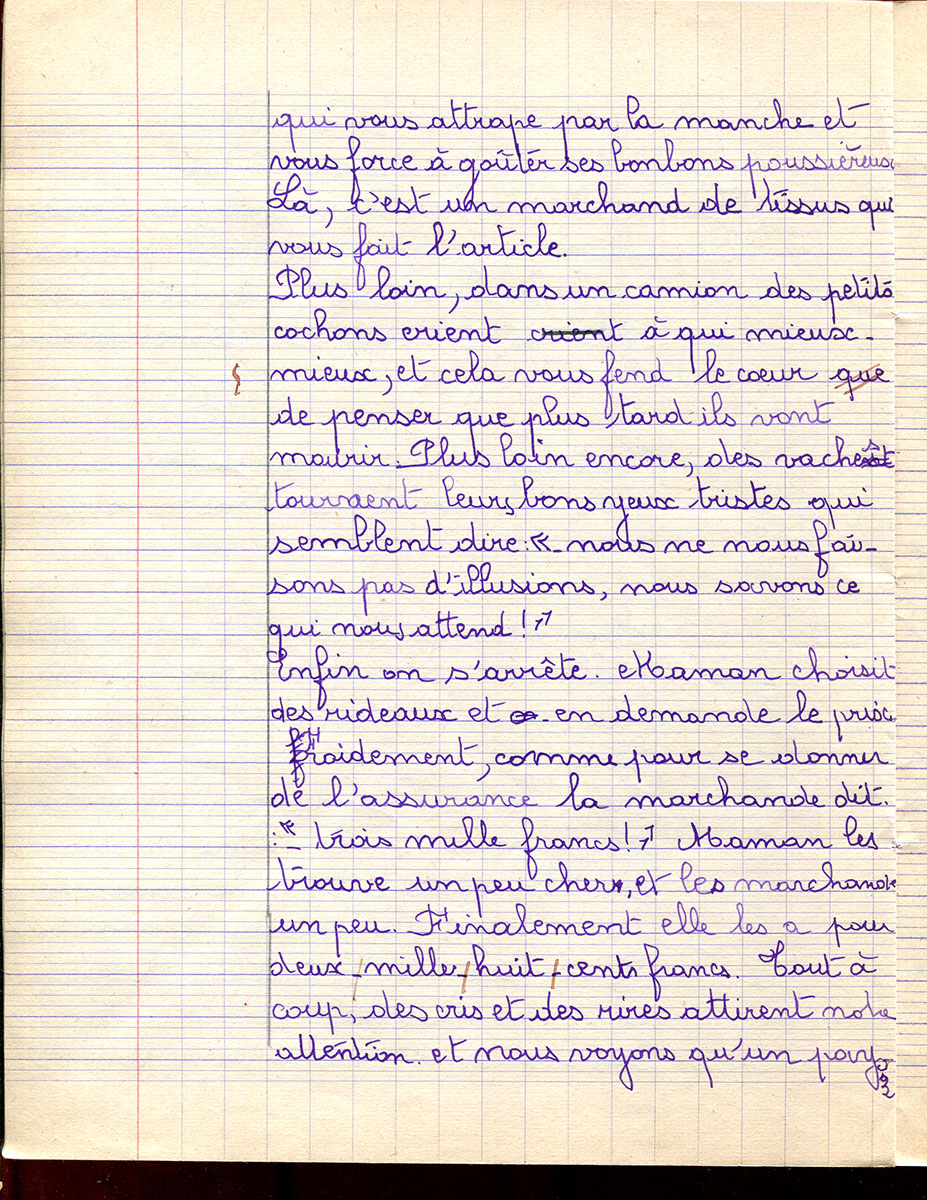 qui vous attrape par la manche et
vous force à goûter ses bonbons poussiéreux
Là, c'est un marchand de tissus qui
vous fait l'article.
Plus loin, dans un camion des petits
cochons crient crient à qui mieux-
mieux, et cela vous fend le coeur que
de penser que plus tard ils vont
mourir. Plus loin encore, des vaches
tournent leurs bons yeux tristes qui
semblent dire : « nous ne nous fai-
sons pas d'illusions, nous savons ce
qui nous attend ! »
Enfin on s'arrête. Maman choisit
des rideaux et en demande le prix
froidement, comme pour se donner
de l'assurance la marchande dit.
: « trois mille francs ! » Maman les
trouve un peu chers, et les marchande
un peu. Finalement elle les a pour
deux-mille-huit-cents francs. Tout à
coup, des cris et des rires attirent notre
attention. et nous voyons qu'un pay